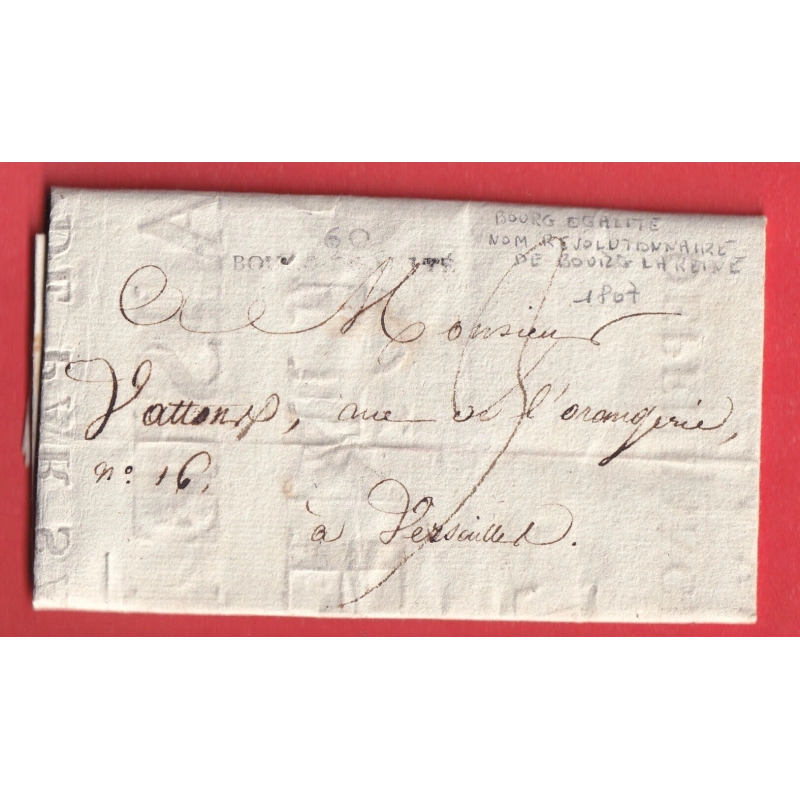 60
BOURG EGALITE
NOM REVOLUTIONNAIRE
DE BOURG LA REINE
1807
A Monsieur
rue de l'orangerie,
n.o 16.
à Versailles.